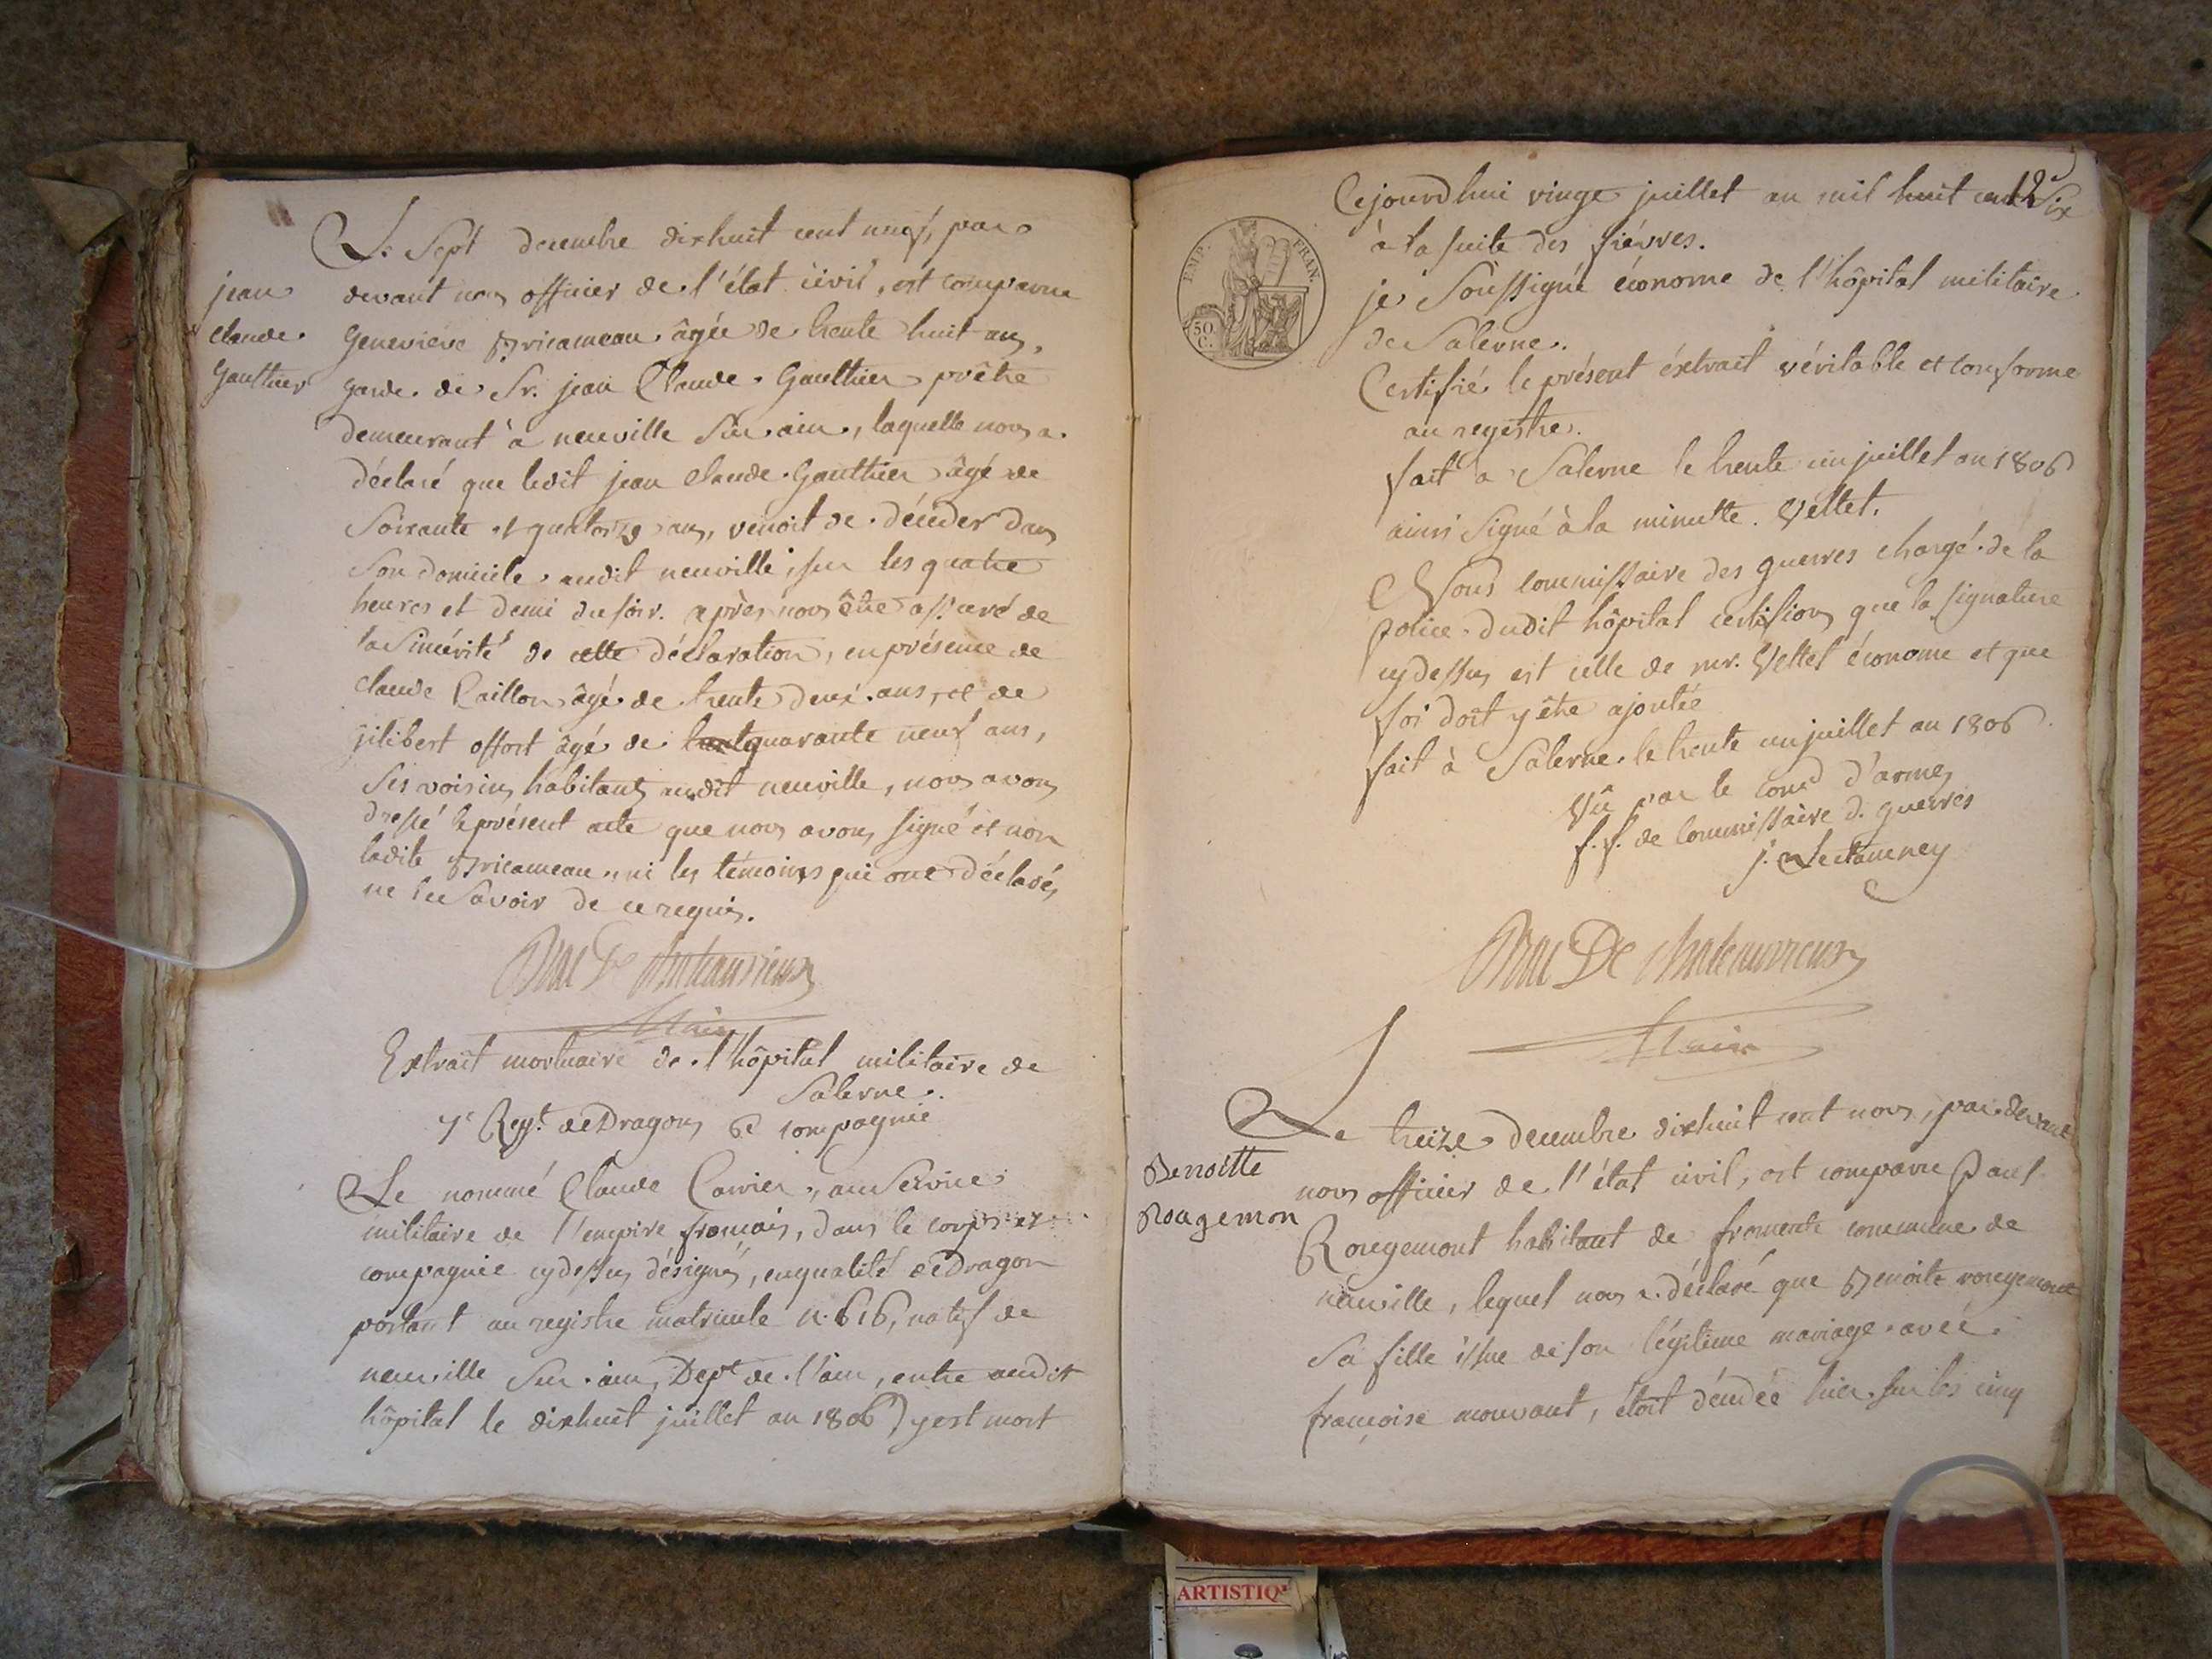 Le Sept decembre dixhuit cent neuf, par
jean
claude
Gauthier
devant nous officier de l'état civil, est comparue
Geneviève Bricameau âgée de trente huit ans,
garde de Sr. jean Claude Gauthier prêtre
demeurant à neuville Sur ain, laquelle nous a
déclaré que ledit jean claude Gauthier âgé de
Soixante et quatorze ans, venoit de décéder dans
Son domicile audit neuville, sur les quatre
heures et demi du soir. après nous être assuré de
la Sincérité de cette déclaration, en présence de
claude Caillon âgé de trente deux ans, et de
jilibert offort âgé de quarante neuf ans,
Ses voisins habitants audit neuville, nous avons
dressé le présent acte que nous avons signé et non
ladite Bricameau, ni les témoins qui ont déclarés
ne le Savoir de ce requis.
Extrait mortuaire de l'hôpital militaire de
Salerne.
7e Regt. de Dragons 6e compagnie
Le nommé Claude Carrier, au Service
militaire de l'empire français, dans le corps et
compagnie cydessus désignés, en qualité de Dragon
portant au registre matricule n. 616, natif de
neuville Sur ain, Dept de l'ain, entré audit
hôpital le dixhuit juillet an 1806, y est mort
12
Cejourdhui vingt juillet an mil huit cent Six
à la suite des fiévres.
EMP. FRAN.
50 C.
je Soussigné économe de l'hôpital militaire
de Salerne.
Certifié le présent éxtrait véritable et conforme
au registre.
fait à Salerne le trente un juillet an 1806
ainsi Signé à la minutte. Vettet.
Nous commissaire des guerres chargé de la
police dudit hôpital certifions que la signature
cydessus est celle de mr. Vettet économe et que
foi doit y être ajoutée
fait à Salerne le trente un juillet an 1806.
Vû par le comd d'armes
f.f. de Commissaire d. guerres
Le treize decembre dixhuit cent nous, par devant
Benoitte
Rougemon
nous officier de l'état civil, est comparu Paul
Rougemont habitant de fromente commune de
neuville, lequel nous a déclaré que Benoite rougemont
Sa fille issue de son légitime mariage avec
françoise mouvant, étoit décédée hier sur les cinq
ARTISTIQ